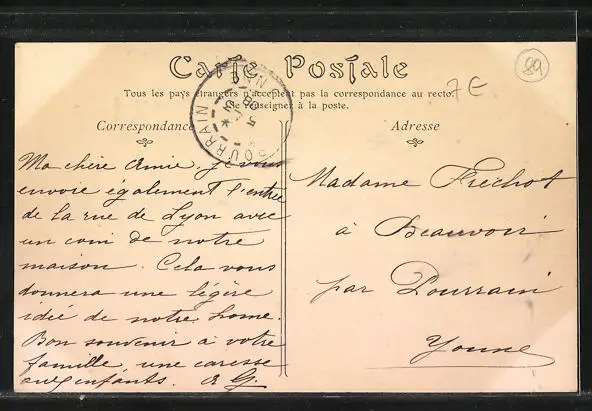 Carte Postale
Tous les pays étrangers n'acceptent pas la correspondance au recto.
Se renseigner à la poste.
7E
89
POURRAIN
Correspondance
Ma chère Amie, je vous
envoie également l'entrée
de la rue de Lyon avec
un coin de notre
maison. Cela vous
donnera une légère
idée de notre home.
Bon souvenir à votre
famille, une caresse
aux enfants. A G.
Adresse
Madame Frechot
à Beauvoir
par Pourrain
Yonne